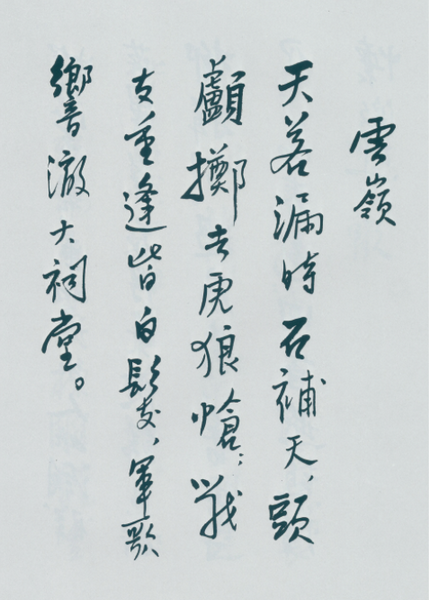 雲嶺
天若漏時石補天，頭
顱擲去虎狼愴；戰
友重逢皆白髮，軍歌
響澈大祠堂。